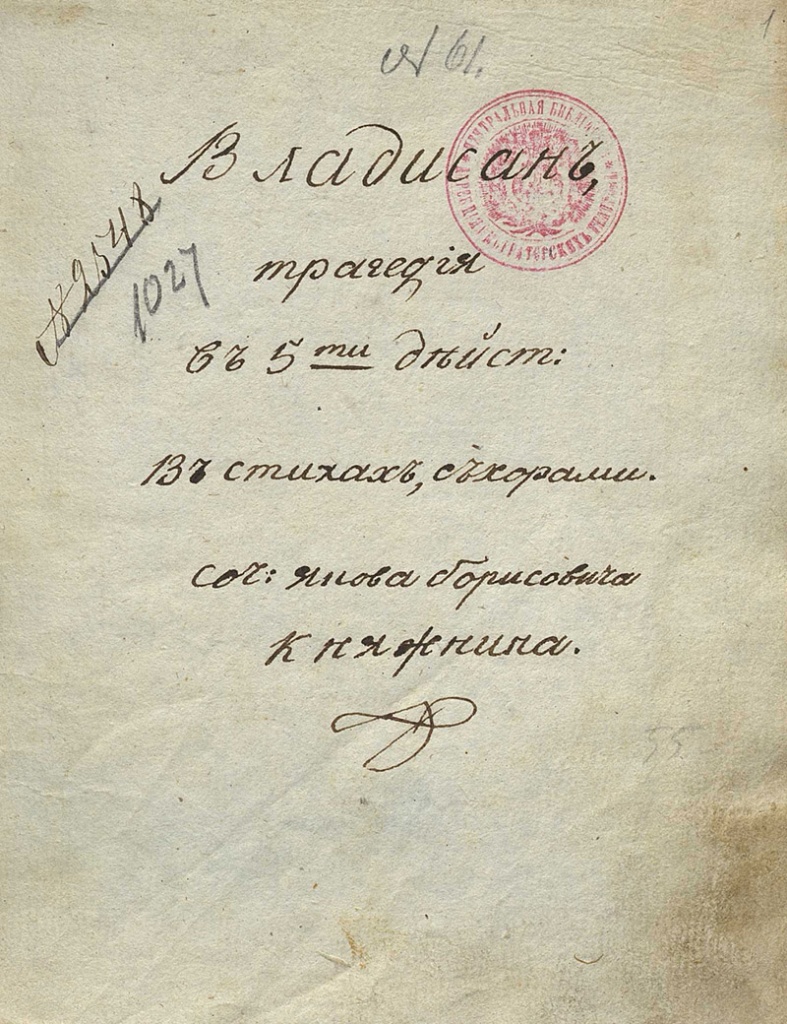 1
№ 61.
Владисанъ,
№ 2548
1027
трагедія
въ 5 ти дѣйст:
Въ стихахъ, съ хорами.
Соч: Якова Борисовича
Княжнина.
55
ЦЕНТРАЛЬНАЯ БИБЛІОТЕКА
ИМПЕРАТОРСКИХЪ